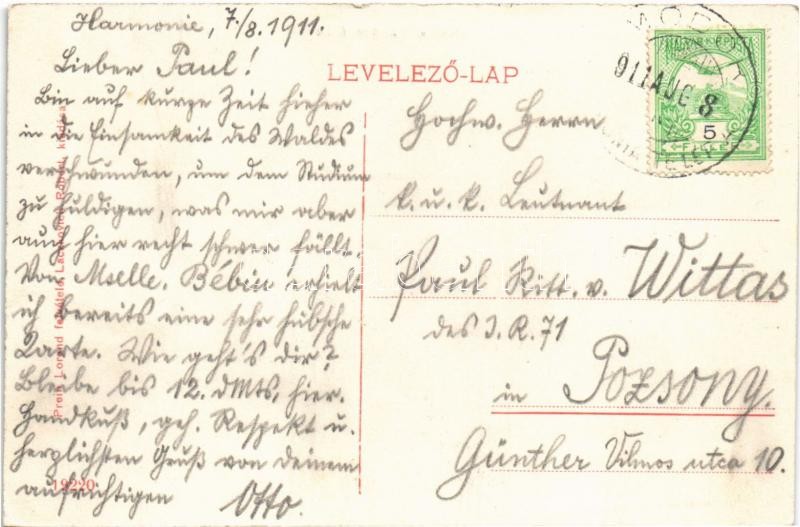 Harmonie, 7./8. 1911.
Lieber Paul!
Bin auf kurze Zeit hieher
in die Einsamkeit des Waldes
verschwunden, um dem Studium
zu huldigen, was mir aber
auch hier recht schwer fällt.
Von Mselle. Bébin erhielt
ich bereits eine sehr hübsche
Karte. Wie geht's dir?
Bleibe bis 12. d Mts, hier.
Handkuß, geh. Respekt u.
herzlichsten Gruß von deinem
aufrichtigen Otto.
LEVELEZŐ-LAP
Hochw. Herrn
k. u. k. Leutnant
Paul Ritt. v. Wittas
des I. R. 71
in Pozsony.
Günther Vilmos utca 10.
MAGYAR KIR. POSTA
5
911 AUG 8
19220